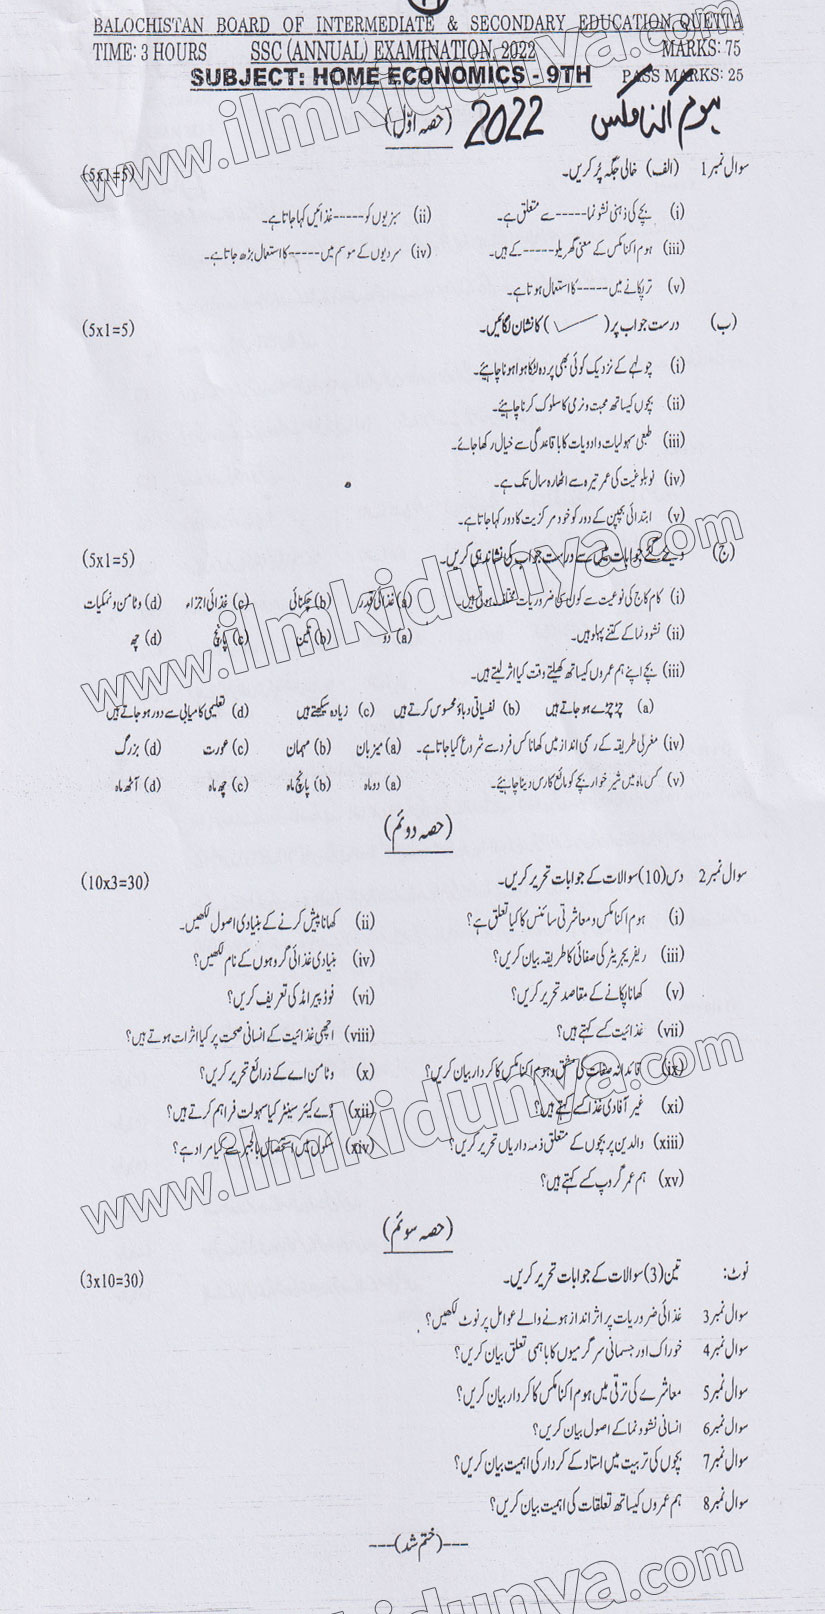 BALOCHISTAN BOARD OF INTERMEDIATE & SECONDARY EDUCATION QUETTA
TIME: 3 HOURS SSC (ANNUAL) EXAMINATION, 2022 MARKS: 75
SUBJECT: HOME ECONOMICS - 9TH PASS MARKS: 25
ہوم اکنامکس 2022 (حصہ اوّل)
سوال نمبر 1 (الف) خالی جگہ پُر کریں۔ (5x1=5)
(i) بچے کی ذہنی نشوونما-----سے متعلق ہے۔ (ii) سبزیوں کو-----غذائیں کہا جاتا ہے۔
(iii) ہوم اکنامکس کے معنی گھریلو-----کے ہیں۔ (iv) سردیوں کے موسم میں-----کا استعمال بڑھ جاتا ہے۔
(v) تر پکانے میں-----کا استعمال ہوتا ہے۔
(ب) درست جواب پر ( ) کا نشان لگائیں۔ (5x1=5)
(i) چولہے کے نزدیک کوئی بھی پردہ لٹکا ہوا ہونا چاہیئے۔
(ii) بچوں کیساتھ محبت و نرمی کا سلوک کرنا چاہیئے۔
(iii) طبی سہولیات و ادویات کا باقاعدگی سے خیال رکھا جائے۔
(iv) نو بلوغیت کی عمر تیرہ سے اٹھارہ سال تک ہے۔
(v) ابتدائی بچپن کے دور کو خود مرکزیت کا دور کہا جاتا ہے۔
(ج) دیئے گئے جوابات میں سے درست جواب کی نشاندہی کریں۔ (5x1=5)
(i) کام کاج کی نوعیت سے کون کی ضروریات مختلف ہوتی ہیں۔ (a) غذائی قدر (b) چکنائی (c) غذائی اجزاء (d) وٹامن و نمکیات
(ii) نشوونما کے کتنے پہلو ہیں۔ (a) دو (b) تین (c) پانچ (d) چھ
(iii) بچے اپنے ہم عمروں کیساتھ کھیلتے وقت کیا اثر لیتے ہیں۔
(a) چڑچڑے ہو جاتے ہیں (b) نفسیاتی دباؤ محسوس کرتے ہیں (c) زیادہ سیکھتے ہیں (d) تعلیمی کامیابی سے دور ہو جاتے ہیں
(iv) مغربی طریقہ کے رسمی انداز میں کھانا کس فرد سے شروع کیا جاتا ہے۔ (a) میزبان (b) مہمان (c) عورت (d) بزرگ
(v) کس ماہ میں شیر خوار بچے کو مالٹے کا رس دینا چاہیئے۔ (a) دو ماہ (b) پانچ ماہ (c) چھ ماہ (d) آٹھ ماہ
(حصہ دوئم)
سوال نمبر 2 دس (10) سوالات کے جوابات تحریر کریں۔ (10x3=30)
(i) ہوم اکنامکس و معاشرتی سائنس کا کیا تعلق ہے؟ (ii) کھانا پیش کرنے کے بنیادی اصول لکھیں۔
(iii) ریفریجریٹر کی صفائی کا طریقہ بیان کریں؟ (iv) بنیادی غذائی گروہوں کے نام لکھیں؟
(v) کھانا پکانے کے مقاصد تحریر کریں؟ (vi) فوڈ پیرامڈ کی تعریف کریں؟
(vii) غذائیت کسے کہتے ہیں؟ (viii) اچھی غذائیت کے انسانی صحت پر کیا اثرات ہوتے ہیں؟
(ix) قائدانہ صفات کی مشق و ہوم اکنامکس کا کردار بیان کریں؟ (x) وٹامن اے کے ذرائع تحریر کریں؟
(xi) غیر آفادی غذا کسے کہتے ہیں؟ (xii) ڈے کیئر سینٹر کیا سہولت فراہم کرتے ہیں؟
(xiii) والدین پر بچوں کے متعلق ذمہ داریاں تحریر کریں؟ (xiv) سکول میں استحصال بالجبر سے کیا مراد ہے؟
(xv) ہم عمر گروپ کسے کہتے ہیں؟
(حصہ سوئم)
نوٹ: تین (3) سوالات کے جوابات تحریر کریں۔ (3x10=30)
سوال نمبر 3 غذائی ضروریات پر اثر انداز ہونے والے عوامل پر نوٹ لکھیں؟
سوال نمبر 4 خوراک اور جسمانی سرگرمیوں کا باہمی تعلق بیان کریں؟
سوال نمبر 5 معاشرے کی ترقی میں ہوم اکنامکس کا کردار بیان کریں؟
سوال نمبر 6 انسانی نشوونما کے اصول بیان کریں؟
سوال نمبر 7 بچوں کی تربیت میں استاد کے کردار کی اہمیت بیان کریں؟
سوال نمبر 8 ہم عمروں کیساتھ تعلقات کی اہمیت بیان کریں؟
---(ختم شد)---
www.ilmkidunya.com
www.ilmkidunya.com
www.ilmkidunya.com
www.ilmkidunya.com